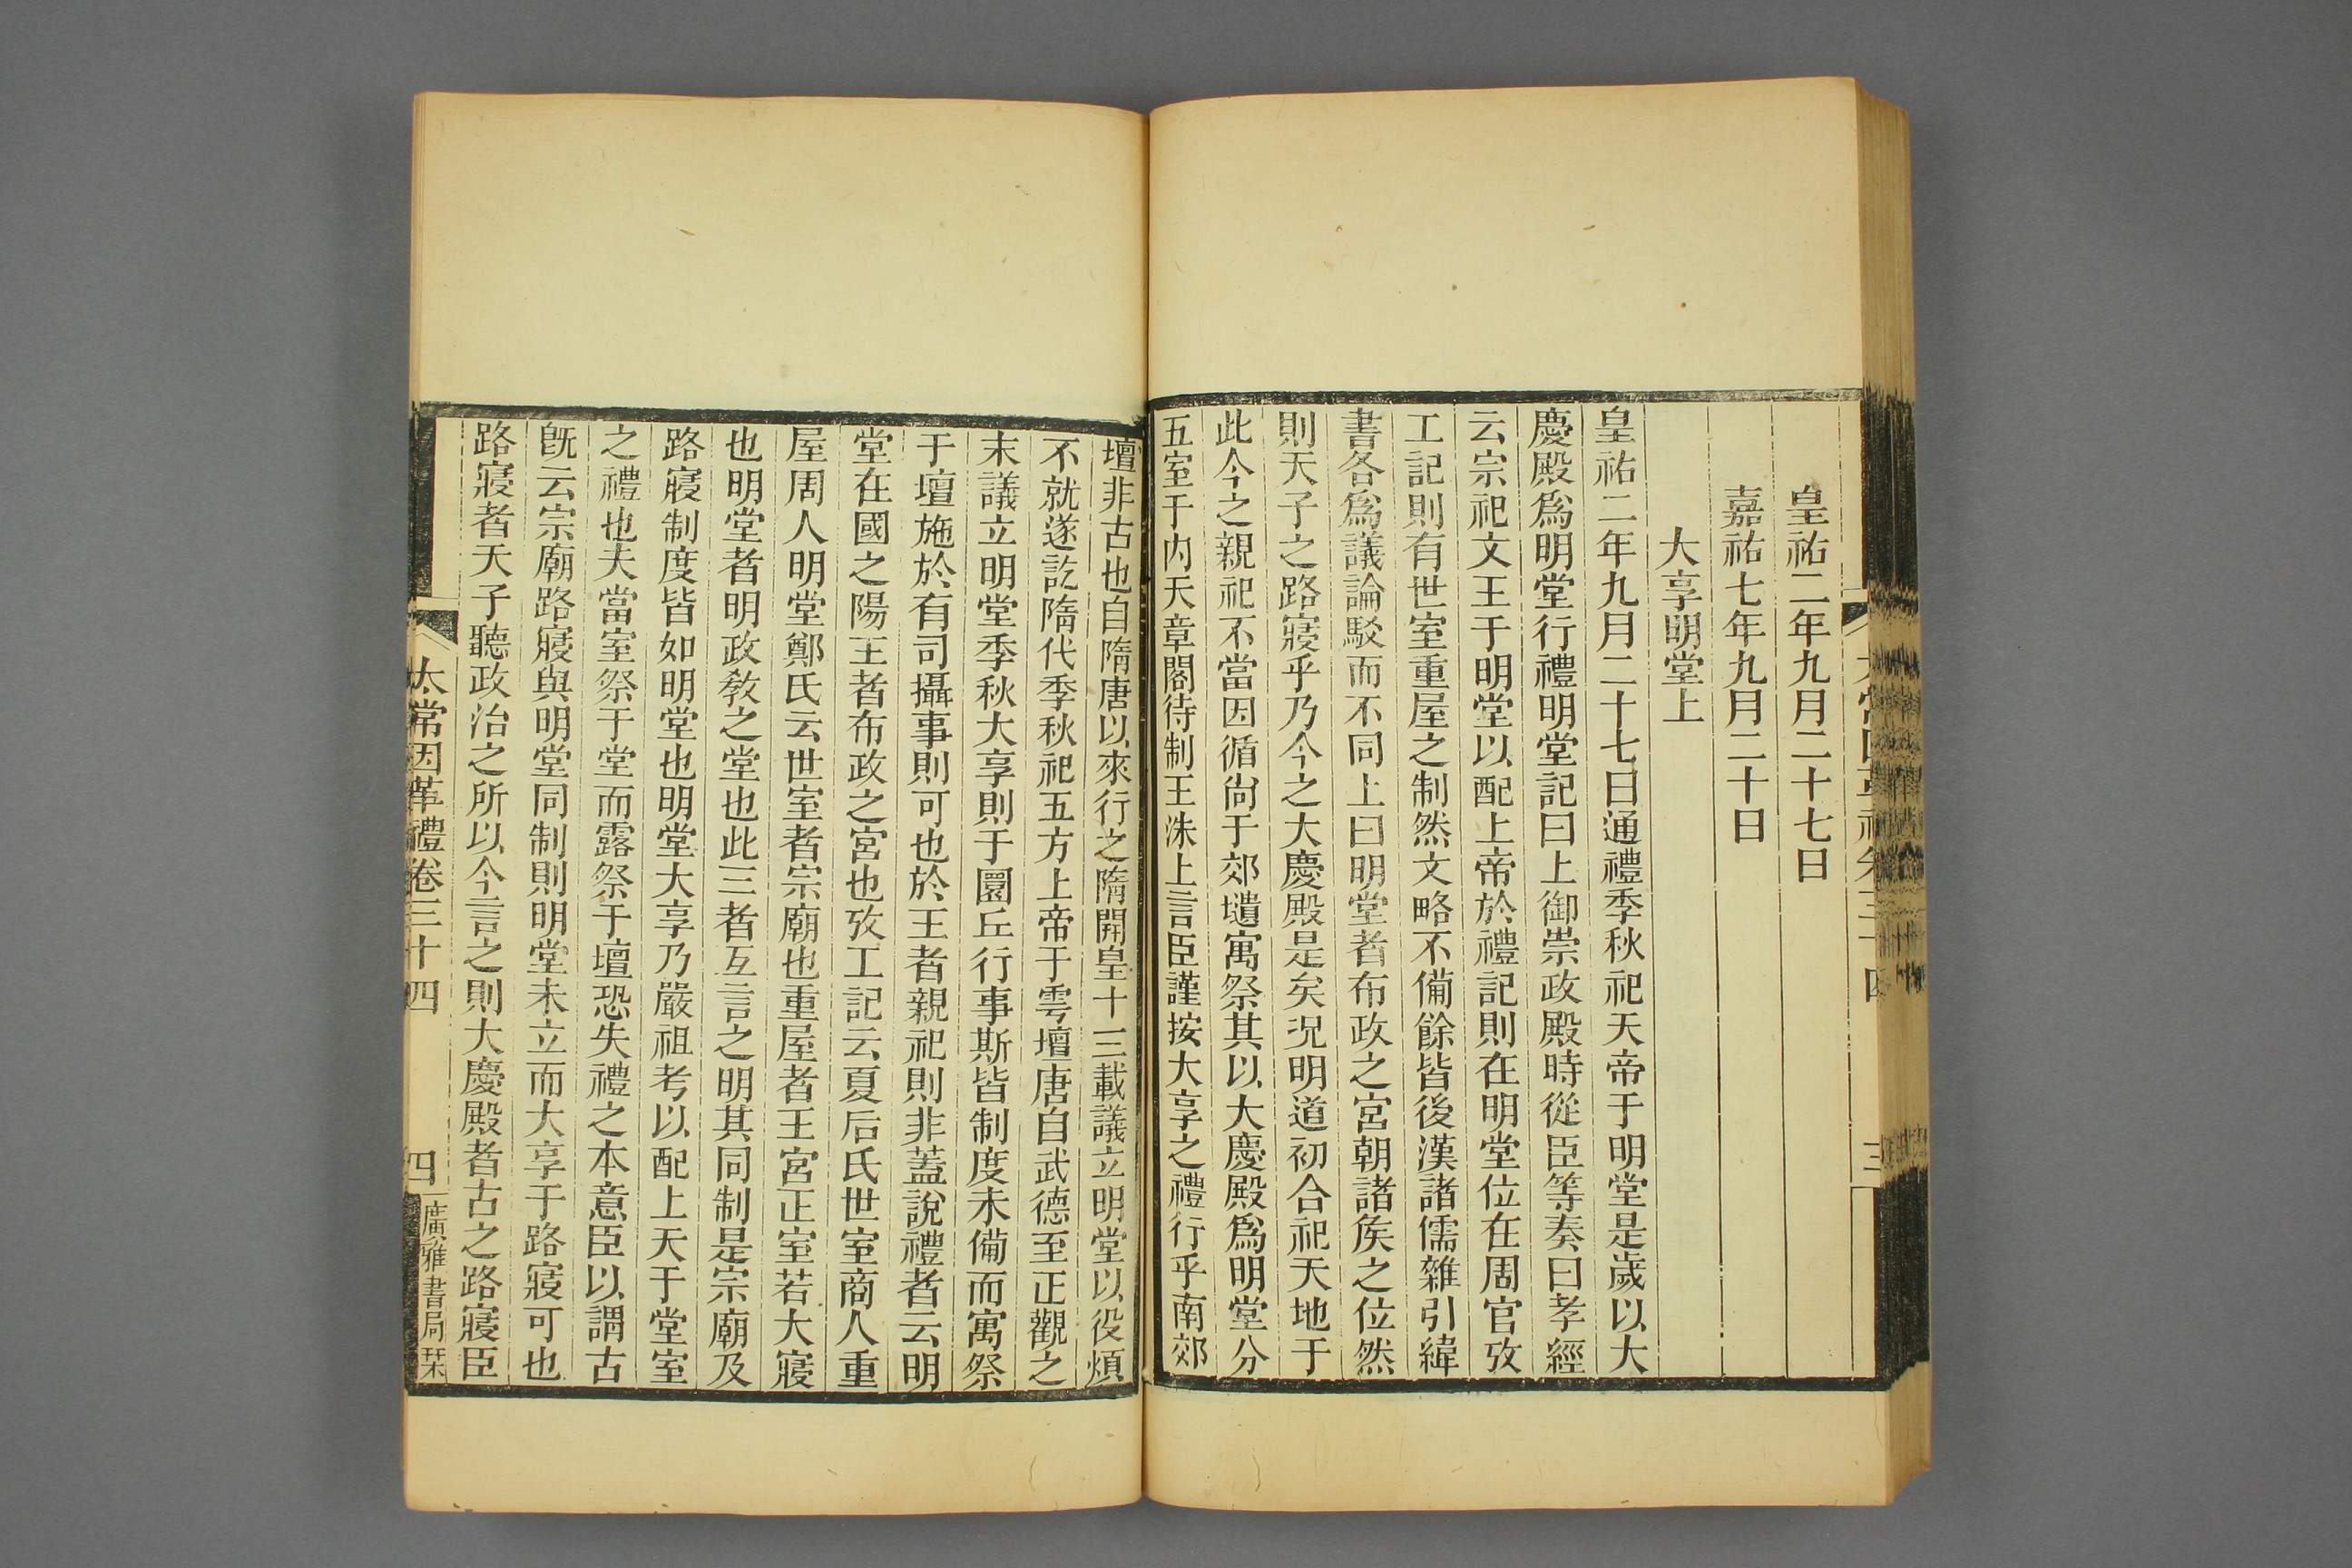 皇祐二年九月二十七日
嘉祐七年九月二十日
大享明堂上
皇祐二年九月二十七日通禮季秋祀天帝于明堂是歲以大
慶殿爲明堂行禮明堂記曰上御崇政殿時從臣等奏曰孝經
云宗祀文王于明堂以配上帝於禮記則在明堂位在周官攷
工記則有世室重屋之制然文略不備餘皆後漢諸儒雜引緯
書各爲議論駁而不同上曰明堂者布政之宮朝諸矦之位然
則天子之路寢乎乃今之大慶殿是矣况明道初合祀天地于
此今之親祀不當因循尙于郊壝寓祭其以大慶殿爲明堂分
五室于內天章閣待制王洙上言臣謹按大享之禮行乎南郊
壇非古也自隋唐以來行之隋開皇十三載議立明堂以役煩
不就遂訖隋代季秋祀五方上帝于雩壇唐自武德至正觀之
末議立明堂季秋大享則于圜丘行事斯皆制度未備而寓祭
于壇施於有司攝事則可也於王者親祀則非蓋說禮者云明
堂在國之陽王者布政之宮也攷工記云夏后氏世室商人重
屋周人明堂鄭氏云世室者宗廟也重屋者王宮正室若大寢
也明堂者明政敎之堂也此三者互言之明其同制是宗廟及
路寢制度皆如明堂也明堂大享乃嚴祖考以配上天于堂室
之禮也夫當室祭于堂而露祭于壇恐失禮之本意臣以謂古
旣云宗廟路寢與明堂同制則明堂未立而大享于路寢可也
路寢者天子聽政治之所以今言之則大慶殿者古之路寢臣
太常因革禮卷三十四
四
廣雅書局栞